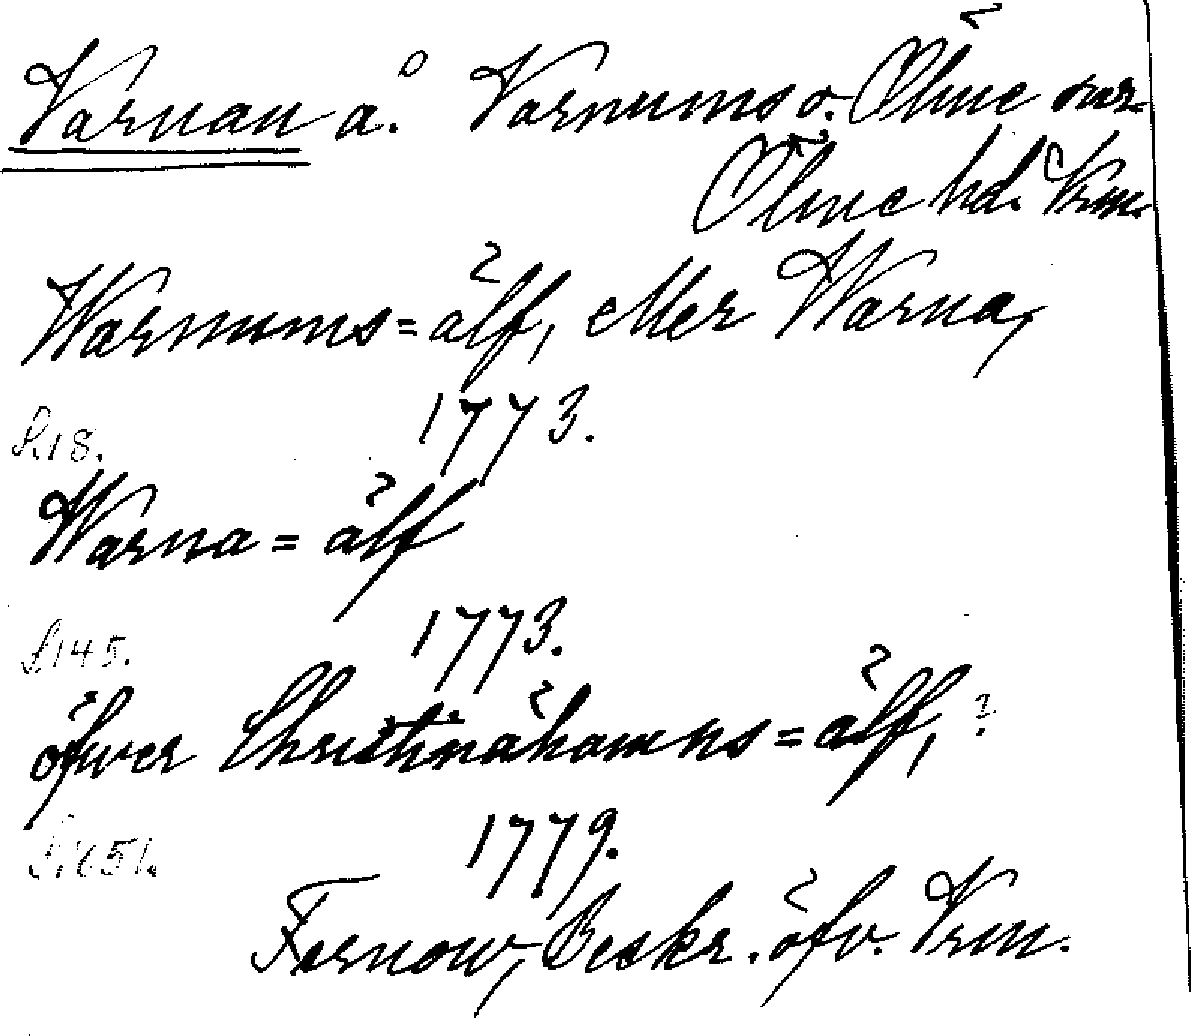 Varnan å. Varnums o. Ölme snr
Ölme hd. Vrm.
Warnums=älf, eller Warna,
S. 18. 1773.
Warna=älf
S. 145. 1773.
öfwer Christinæhamns=älf, ?
S. 651. 1779.
Fernow, Beskr. öfv. Vrm.